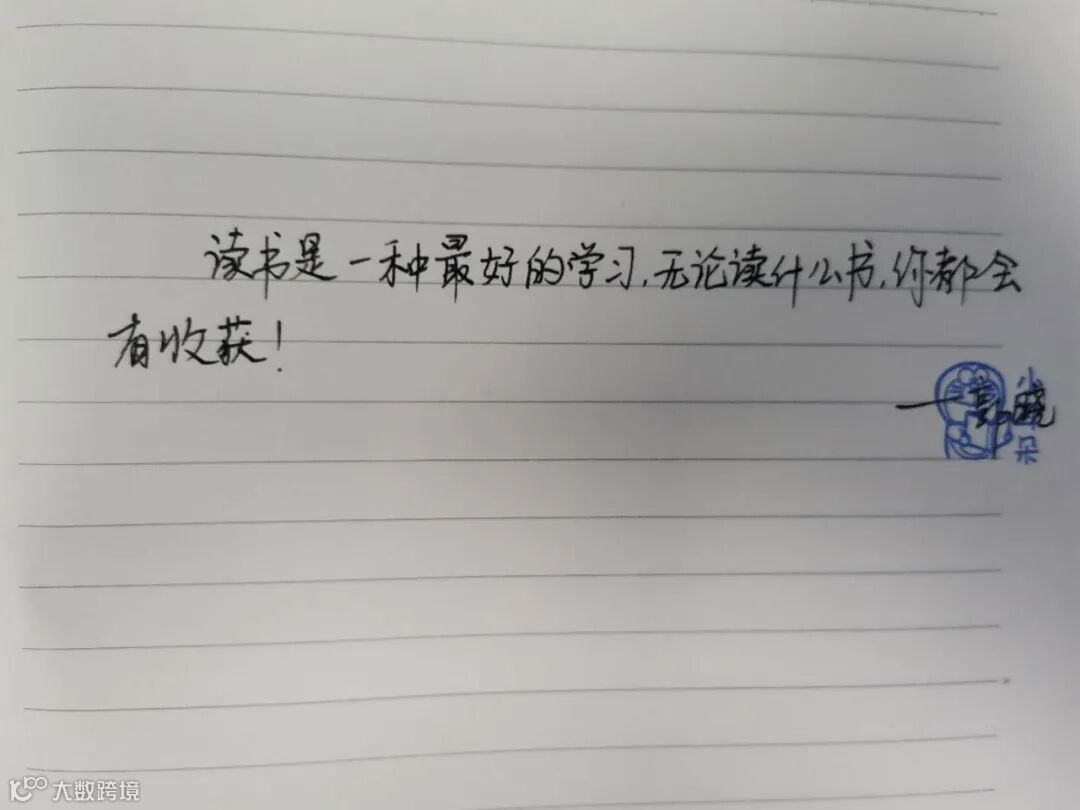 读书是一种最好的学习,无论读什么书,你都会
有收获!
——郭晓
小
朵
大数跨境